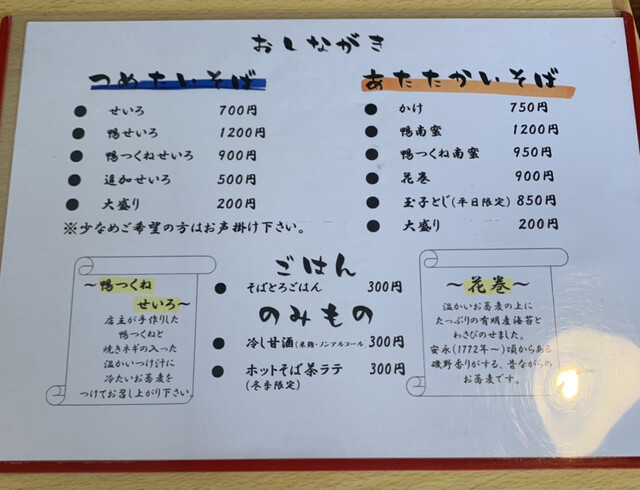 おしながき
つめたいそば
● せいろ 700円
● 鴨せいろ 1200円
● 鴨つくねせいろ 900円
● 追加せいろ 500円
● 大盛り 200円
※少なめご希望の方はお声掛け下さい。
あたたかいそば
● かけ 750円
● 鴨南蛮 1200円
● 鴨つくね南蛮 950円
● 花巻 900円
● 玉子とじ(平日限定) 850円
● 大盛り 200円
ごはん
● そばとろごはん 300円
のみもの
● 冷し甘酒(米麹・ノンアルコール) 300円
● ホットそば茶ラテ 300円
(冬季限定)
～鴨つくね
せいろ～
店主が手作りした
鴨つくねと
焼きネギの入った
温かいつけ汁に
冷たいお蕎麦を
つけてお召し上がり下さい。
～花巻～
温かいお蕎麦の上に
たっぷりの有明産海苔と
わさびのせました。
安永(1772年～)頃からある
磯野香りがする、昔ながらの
お蕎麦です。